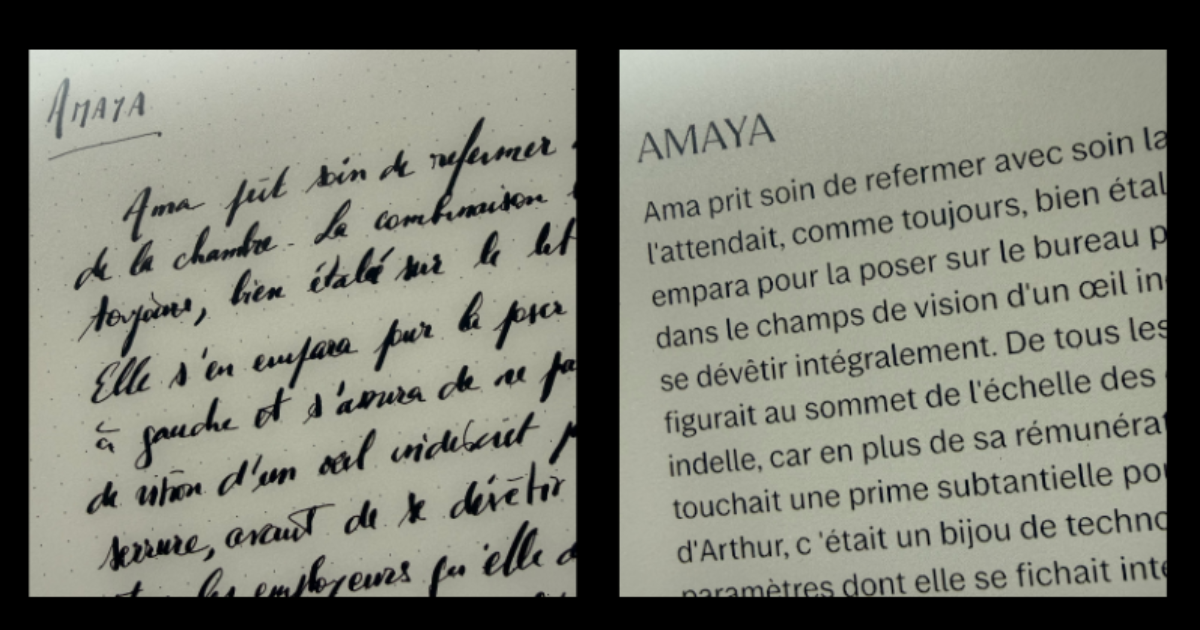 AMAYA
Ama prit soin de refermer
de la chambre. La combinaison
toujours, bien étalée sur le lit
Elle s'en empara pour la poser
à gauche et s'assura de ne pa
de vision d'un œil indiscret
serrure, avant de se dévêtir
les employeurs qu'elle
AMAYA
Ama prit soin de refermer avec soin la
l'attendait, comme toujours, bien étal
empara pour la poser sur le bureau p
dans le champs de vision d'un œil in
se dévêtir intégralement. De tous les
figurait au sommet de l'échelle des
indelle, car en plus de sa rémunérat
touchait une prime subtantielle pou
d'Arthur, c 'était un bijou de techno
paramètres dont elle se fichait inté